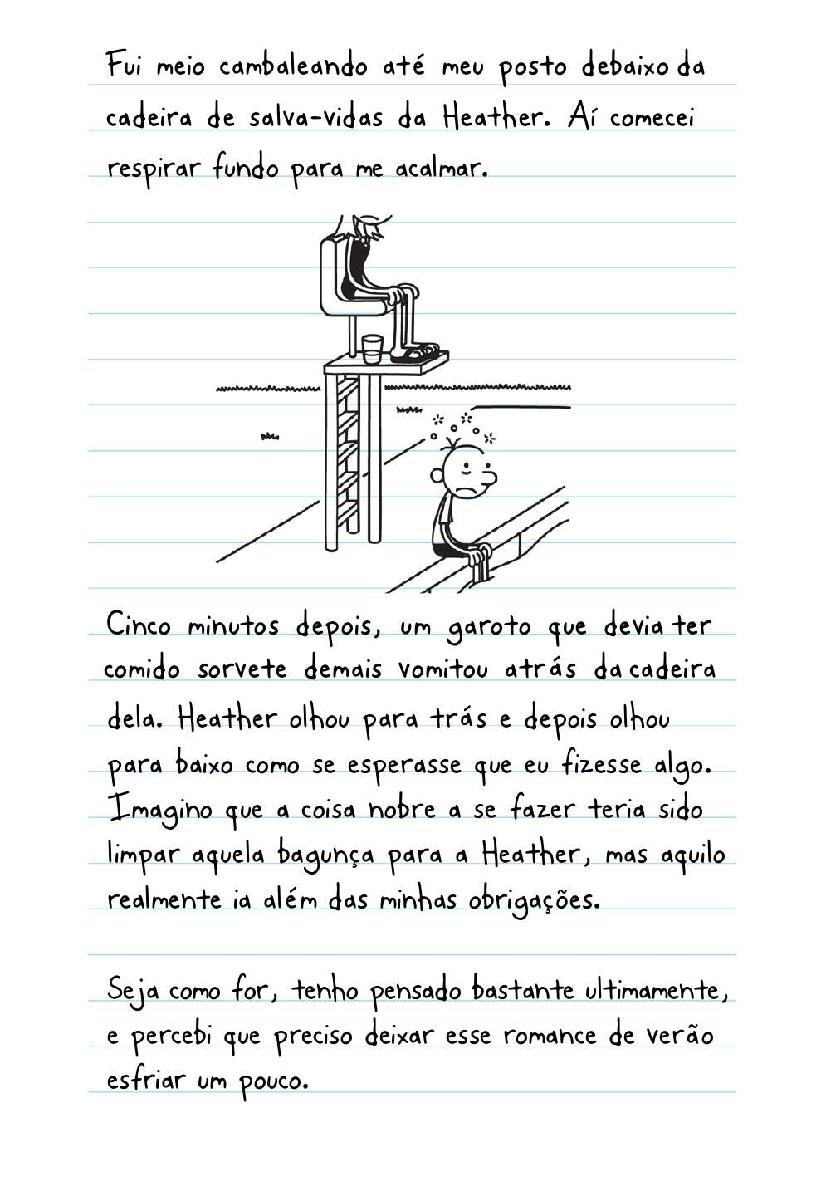 Fui meio cambaleando até meu posto debaixo da
cadeira de salva-vidas da Heather. Aí comecei
respirar fundo para me acalmar.
Cinco minutos depois, um garoto que devia ter
comido sorvete demais vomitou atrás da cadeira
dela. Heather olhou para trás e depois olhou
para baixo como se esperasse que eu fizesse algo.
Imagino que a coisa nobre a se fazer teria sido
limpar aquela bagunça para a Heather, mas aquilo
realmente ia além das minhas obrigações.
Seja como for, tenho pensado bastante ultimamente,
e percebi que preciso deixar esse romance de verão
esfriar um pouco.